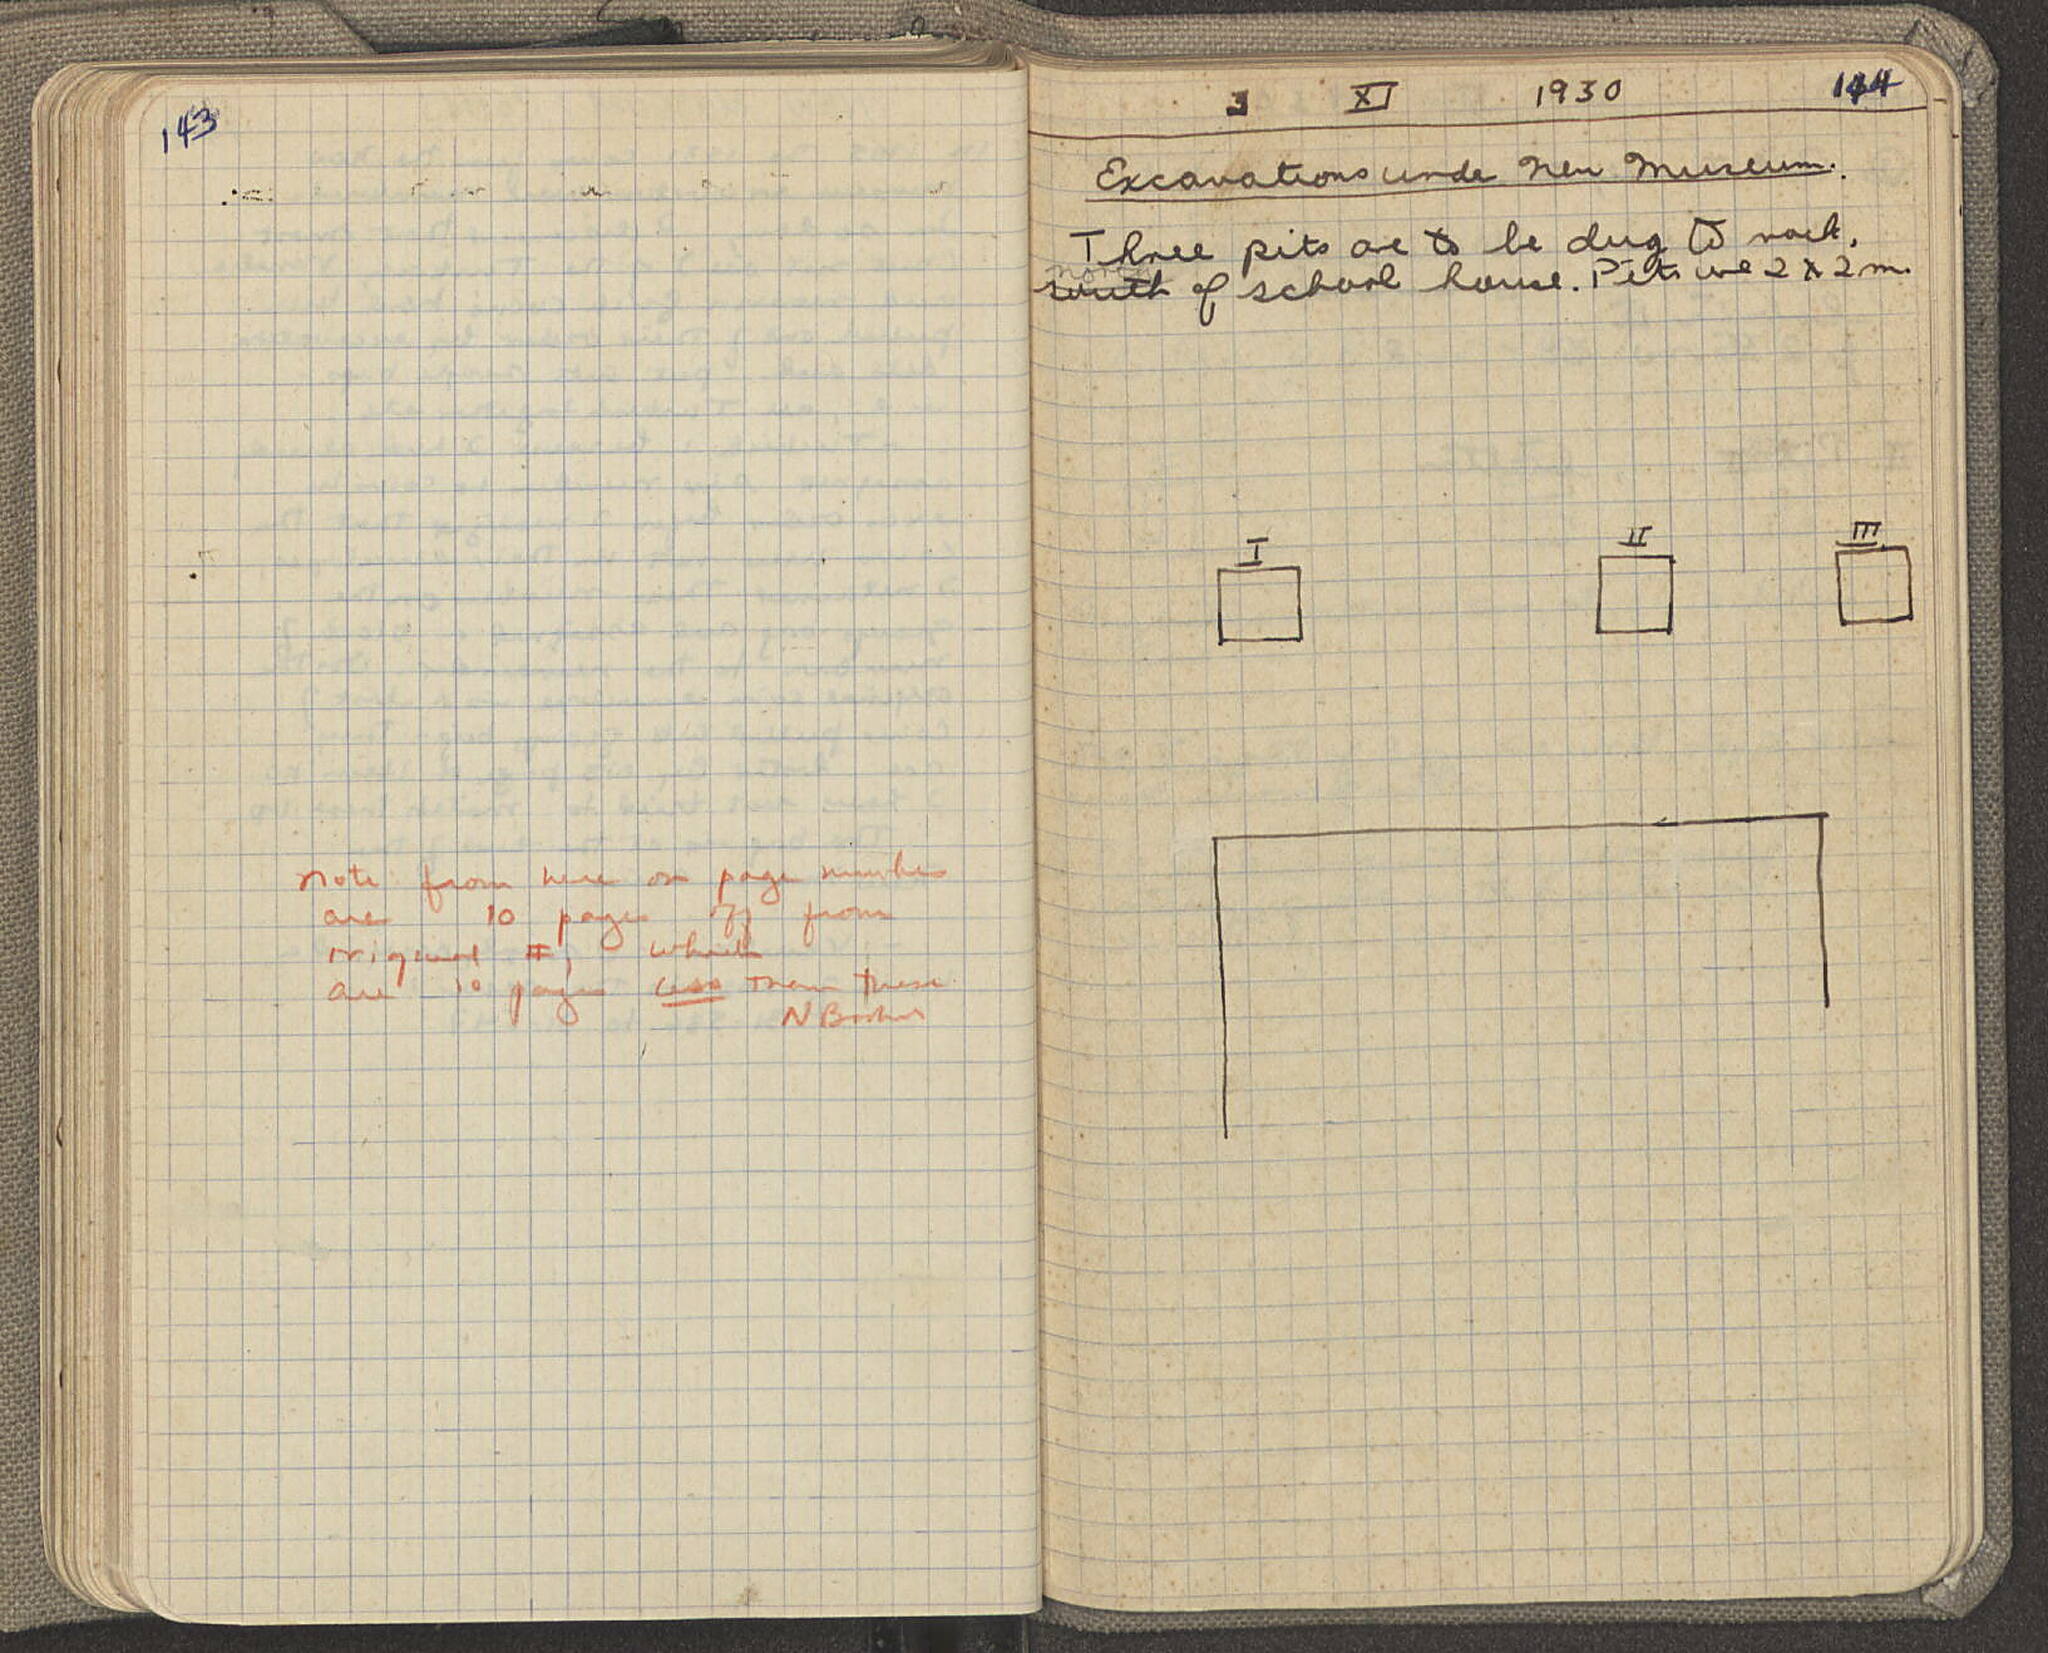 143
note from here on page number
are 10 pages off from
original #, which
are 10 pages less than these
3 XI 1930 144
Excavations under New Museum.
Three pits are to be dug to rock,
north
south of school house. Pits are 2 x 2 m.
I II III